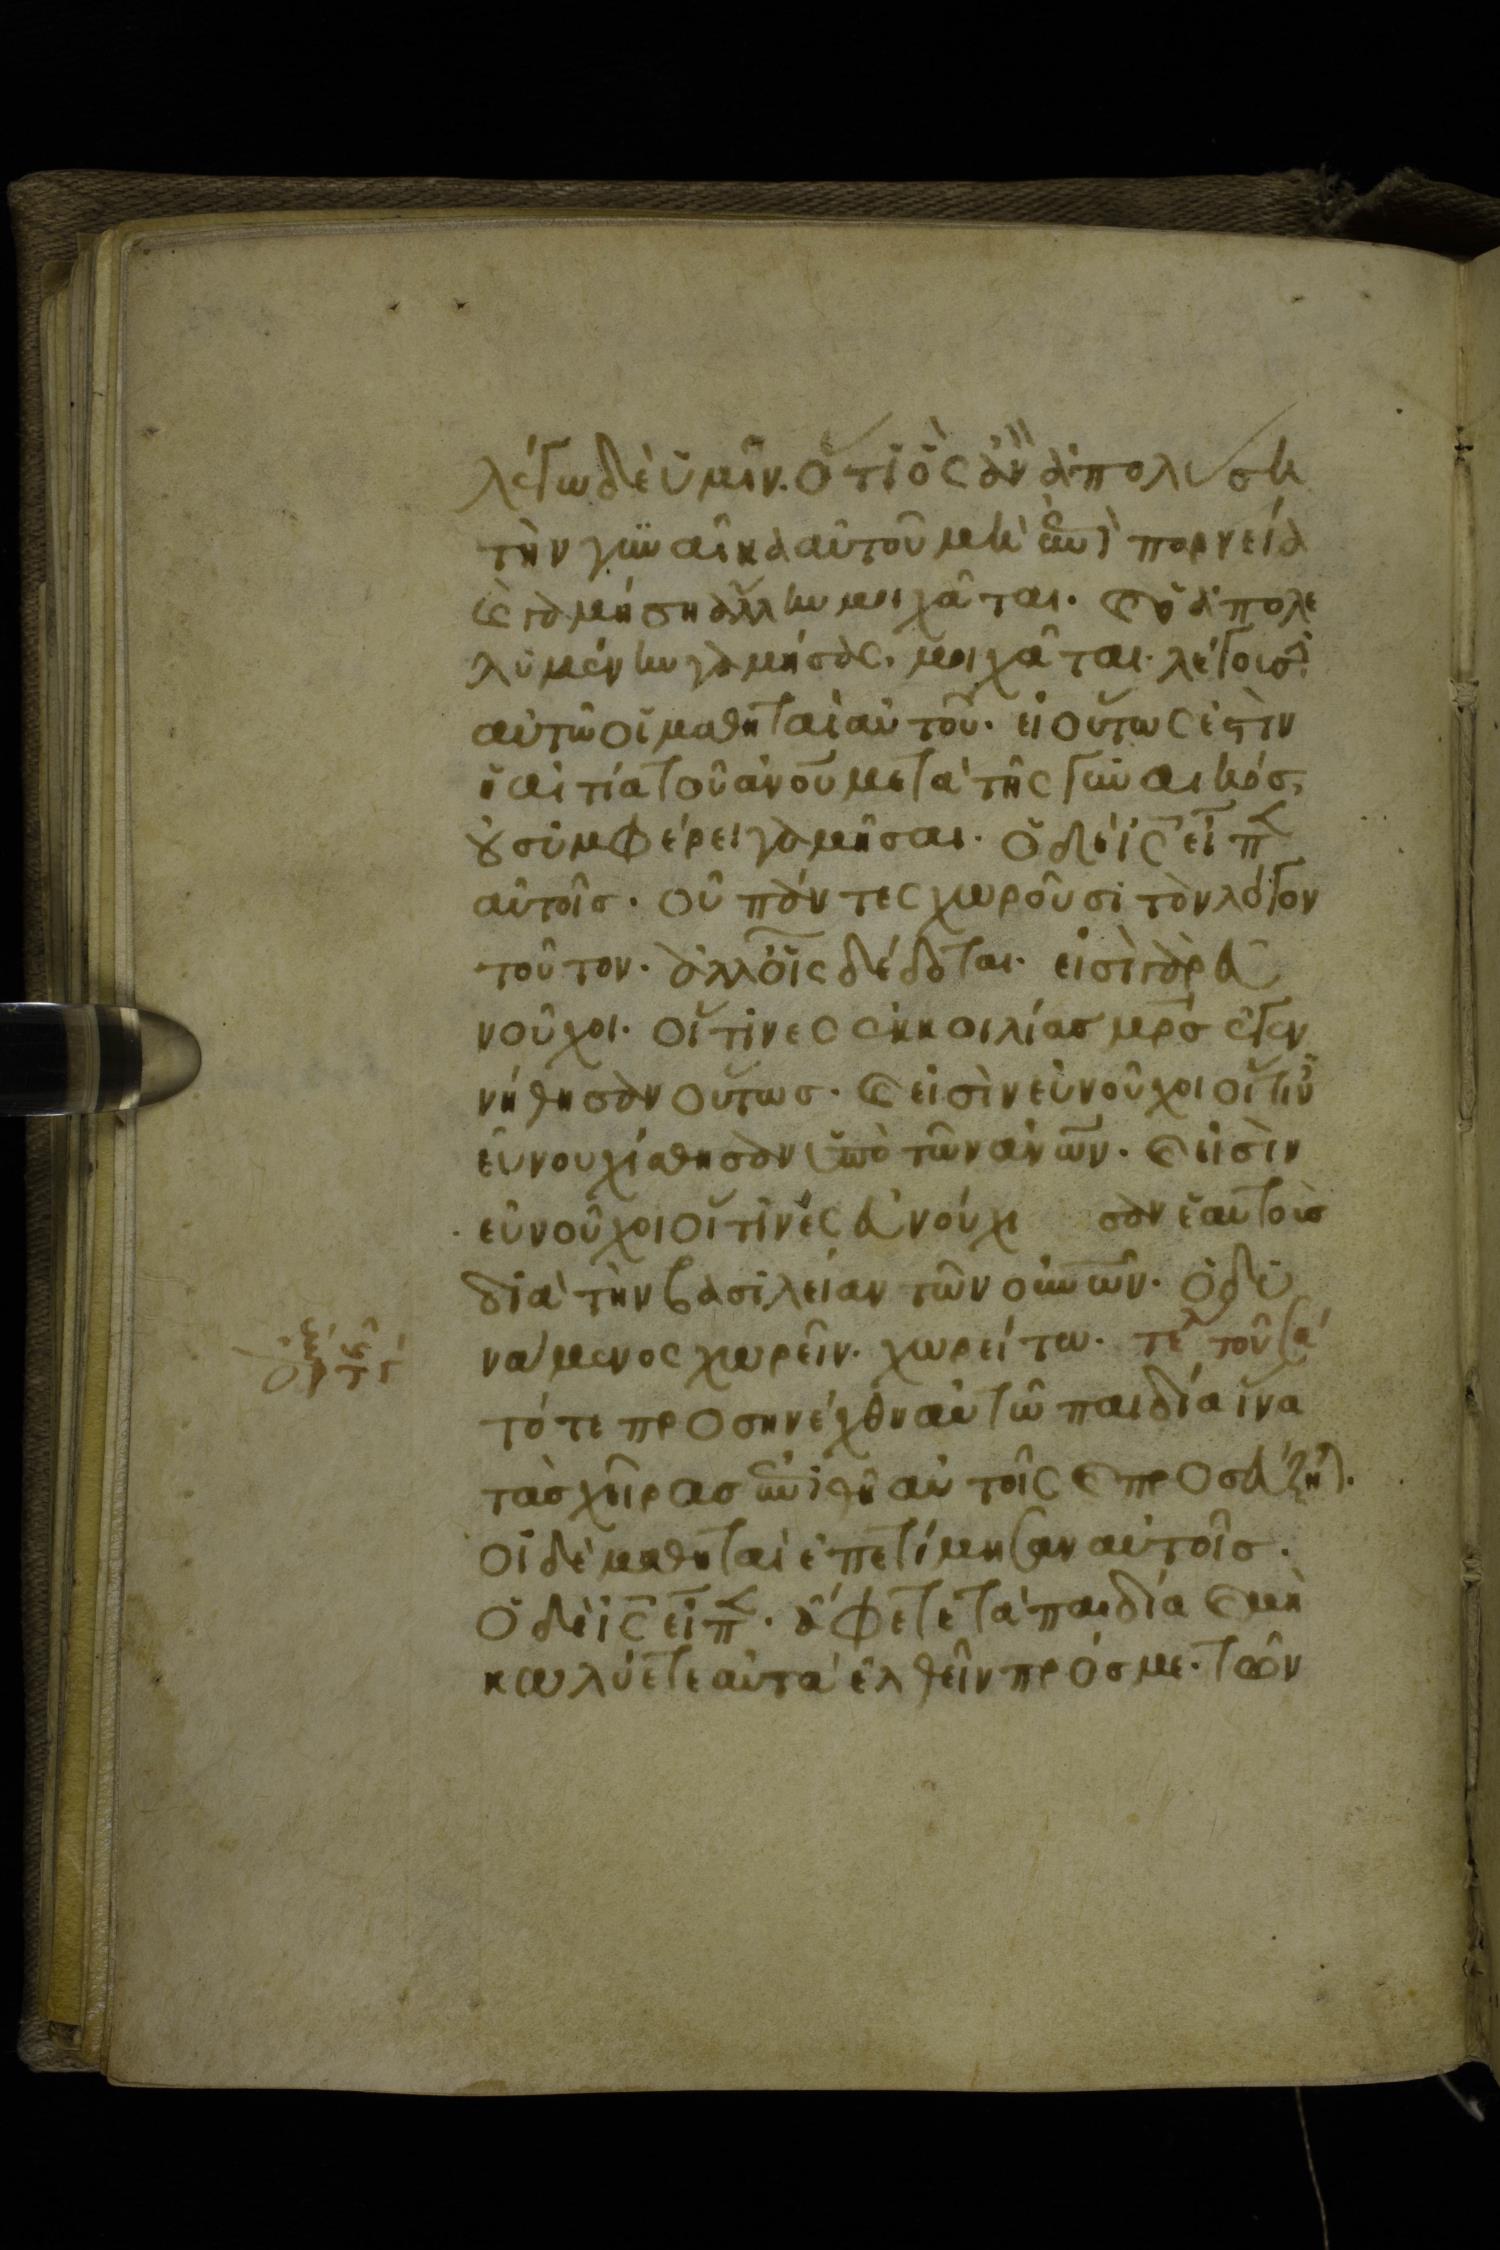 λέγω δὲ ὑμῖν. ὅτι ὃς ἂν ἀπολύση
τὴν γυναῖκα αὐτοῦ μὴ ἐπὶ πορνεία
καὶ γαμήση ἄλλην μοιχᾶται. καὶ ὁ ἀπολε
λυμένην γαμήσας. μοιχᾶται. λέγουσιν
αὐτῶ οἱ μαθηταὶ αὐτοῦ. εἰ οὕτως ἐστὶν
ἡ αἰτία τοῦ ἀνου μετὰ τῆς γυναικός,
οὐ συμφέρει γαμῆσαι. ὁ δὲ ις εἶπ
αὐτοῖς. οὐ πάντες χωροῦσι τὸν λόγον
τοῦτον. ἀλλ οἷς δέδοται. εἰσὶ γὰρ εὐ
νοῦχοι. οἵτινες ἐκ κοιλίας μρσ ἐγεν
νήθησαν οὕτως. καὶ εἰσὶν εὐνοῦχοι οἵτιν
εὐνουχίσθησαν ὑπὸ τῶν ανων. καὶ εἰσὶν
εὐνοῦχοι οἵτινες εὐνούχι σαν ἑαυτοὺς
διὰ τὴν βασιλείαν τῶν οὐνων. ὁ δυ
νάμενος χωρεῖν. χωρείτω. τε τοῦ σα
τότε προσηνέχθη αὐτῶ παιδία ἵνα
τὰς χεῖρας ἐπιθῆ αὐτοῖς καὶ προσεύξητ.
οἱ δὲ μαθηταὶ ἐπετίμησαν αὐτοῖς.
ὁ δὲ ις εἶπ. ἄφετε τὰ παιδία καὶ μὴ
κωλύετε αὐτὰ ἐλθεῖν πρός με. τῶν